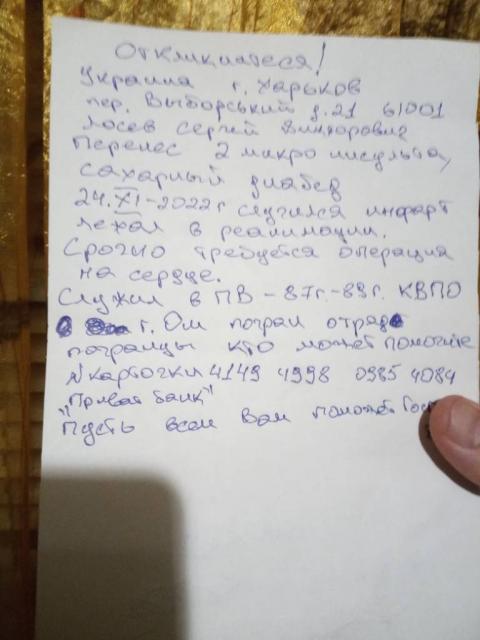 Откликнитеся!
Украина г. Харьков
пер. Выборський д. 21 61001
Лосев Сергий Викторович
Перенес 2 микро инсульта,
сахарный диабед
24.XI-2022г случился инфарт
лежал в реанимации.
Срочно требуется операция
на сердце.
Служил в ПВ - 87г.-89г. КВПО
г. Ош погран отряд
погранцы кто может помогите
№ карточки 4149 4998 0985 4084
"Приват банк"
Пусть всем Вам поможет